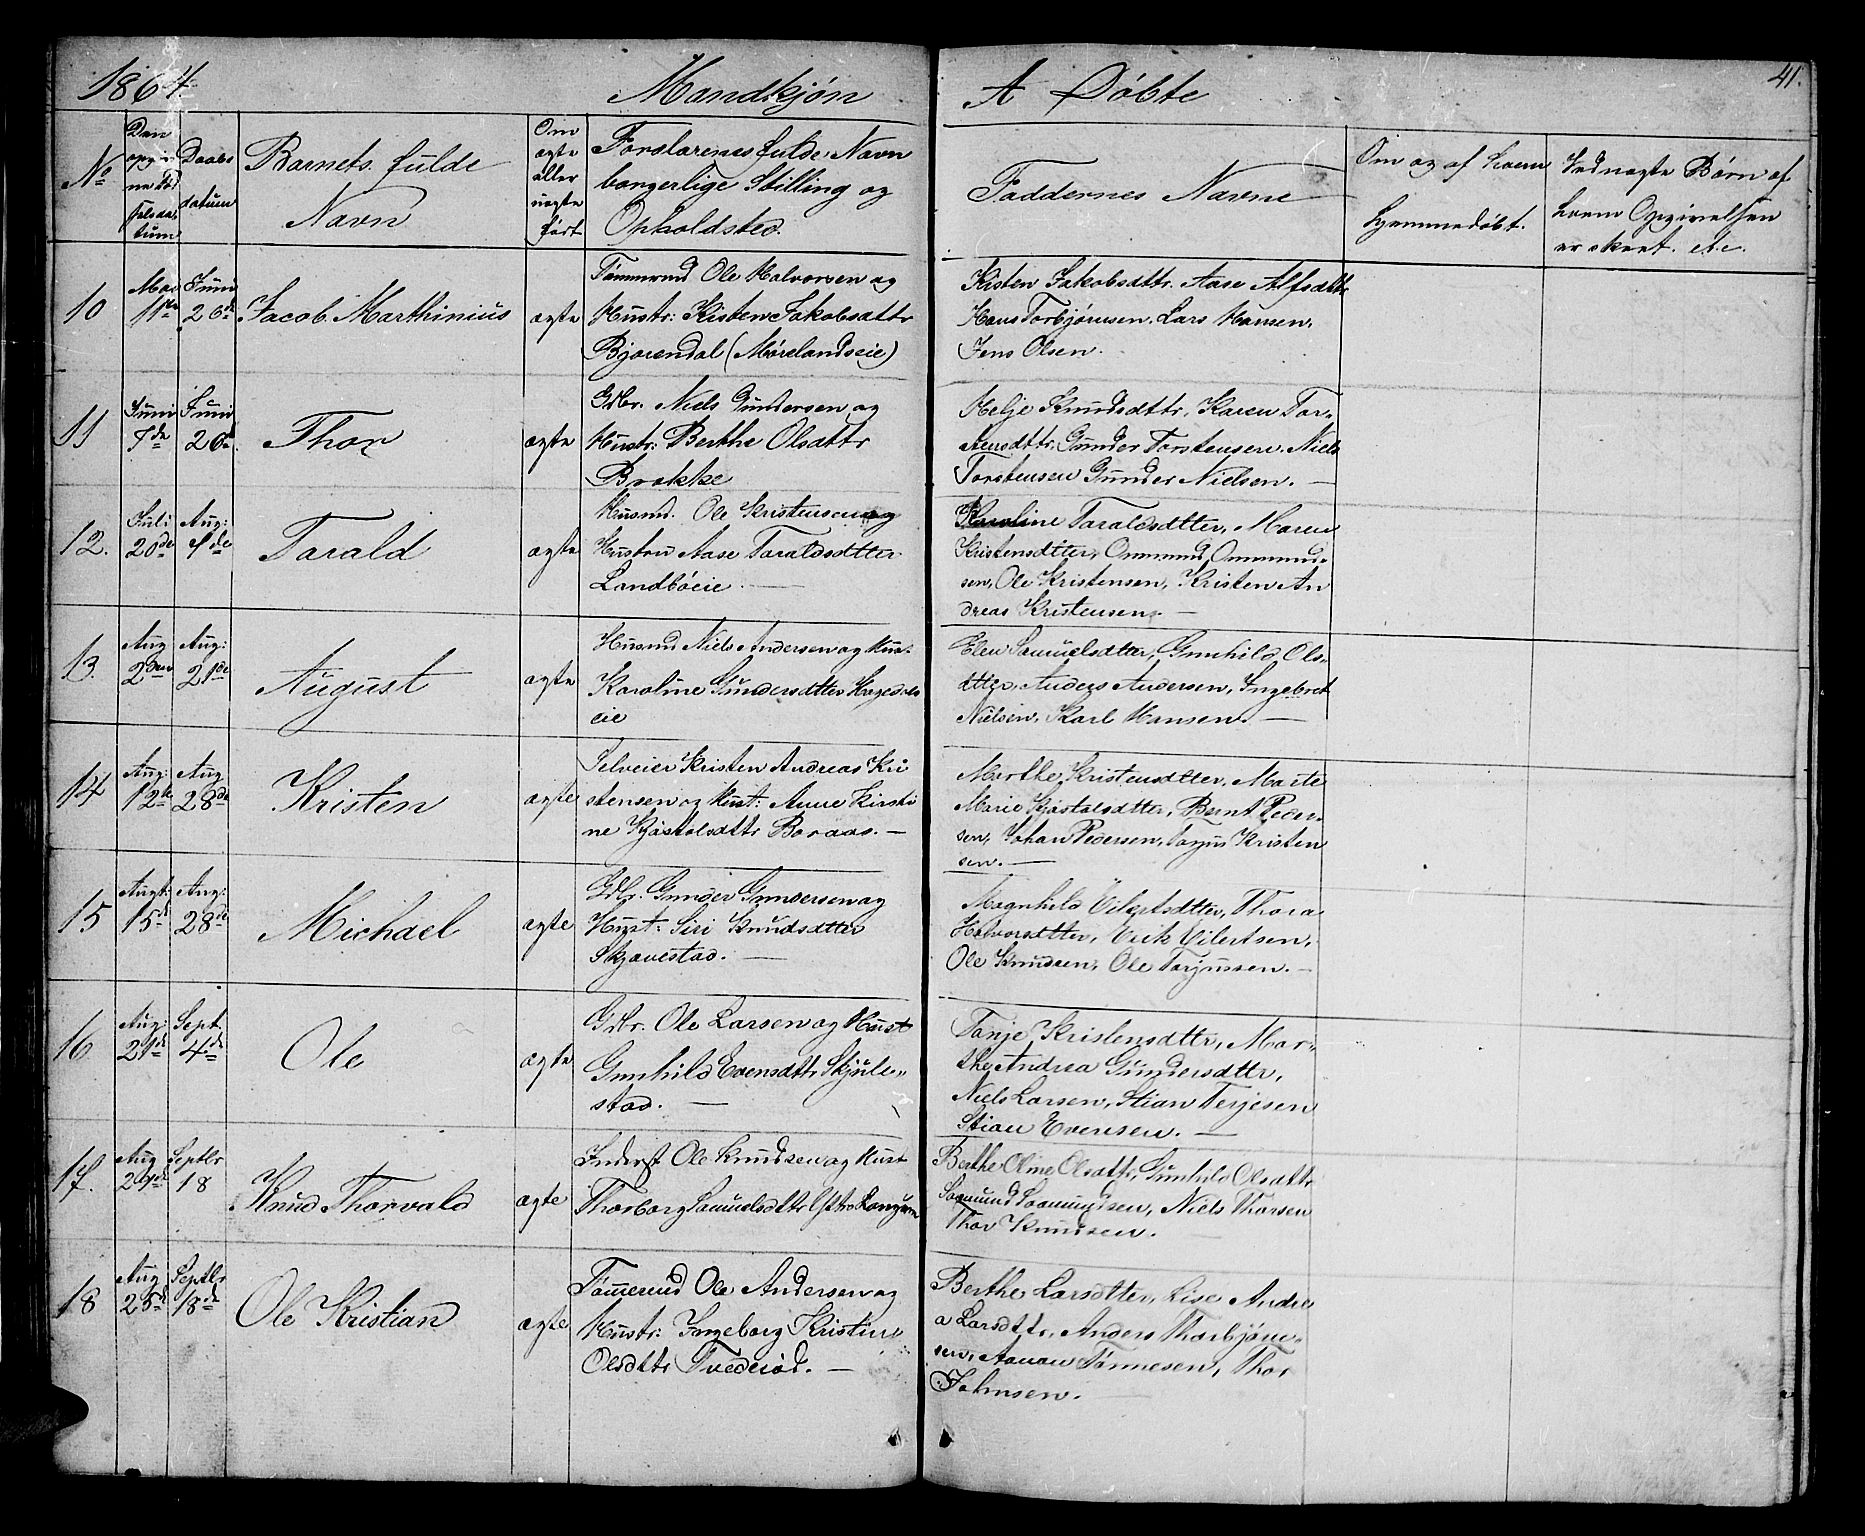 1864. Mandkjøn A Døbte 41.
No
Den opgivne Fødselsdatum
Daabsdatum
Barnets fulde
Navn
Om ægte eller uægte født
Forældrenes fulde Navn
borgerlige Stilling og
Opholdsted.
Faddernes Navne
Om og af hvem
hjemmedøbt.
Ved uægte Børn af
hvem Opgivelsen
er skeet. etc.
10 Mai 11te Juni 26de Jacob Marthinius ægte
Tømmermd Ole Halvorsen og
Hustr: Kisten Jakobsdttr
Bjorendal (Mørelandseie)
Kisten Jakobsdttr. Aase Alfsdttr
Hans Torbjørnsen. Lars Hansen.
Jens Olsen.
11 Juni 7de Juni 26de Thor ægte
Gdbr. Niels Gundersen og
Hustr: Berthe Olsdttr
Brokke
Helje Knudsdttr, Karen Tor-
stensdttr. Gunder Torstensen. Niels
Torstensen Gunder Nielsen. —
12. Juli 20de Aug: 7de Tarald ægte
Husmd. Ole Kristensen og
Hustru Aase Taraldsdtter
Landbøeie. —
Karoline Taraldsdtter, Maren
Kristensdtter, Ommund Ommund-
sen, Ole Kristensen, Kristen An
dreas Kristensen. —
13. Aug 2den Aug: 21de August ægte
Husmd Niels Andersen og Hust.
Karoline Gundersdtter
eie
Elen Samuelsdtter, Gunhild Ols-
dtter, Anders Andersen, Ingebret
Nielsen, Karl Hansen. —
14 Aug: 12te Aug 28de Kristen ægte
Selveier Kristen Andreas Kri
stensen og Hust: Anne Kirsti
ne Kjøstolsdttr Boraas. —
Marthe Kristensdtter, Marte
Marie Kjøstolsdtter, Bernt Peder-
sen, Johan Pedersen, Torjus Kristen
sen. —
15 Augt: 15de Aug: 28de Michael ægte
Gdbr. Gunder Gundersen og
Hust: Siri Knudsdtter
Skjævestad. —
Magnhild Eilertsdtter, Thora
Halvorsdtter, Erik Eilertsen,
Ole Knudsen, Ole Torjussen. —
16 Aug: 21de Sept. 4de Ole ægte
Gdbr. Ole Larsen og Hust
Gunhild Evensdttr Skjule-
stad. —
Tonje Kristensdttr, Mar-
the Andrea Gundersdttr,
Niels Larsen, Stian Terjesen
Stian Evensen. —
17. Aug Septbr 18 Knud Thorvald ægte
Inderst Ole Knudsen og Hust
Thorborg Samuelsdttr Langum
Berthe Oline Olsdttr, Gunhild Olsdttr
Saamund Saamundsen, Niels Thorsen
Thor Knudsen.
18 Aug 25de Septbr 18de Ole Kristian ægte
Tømmermd Ole Andersen og
Hustr: Ingeborg Kristine
Olsdttr Tvedeiød. —
Berthe Larsdtter, Lise Andre
a Larsdttr, Anders Thorbjørn-
sen, Aanon Tønnesen, Thor
Johnsen. —